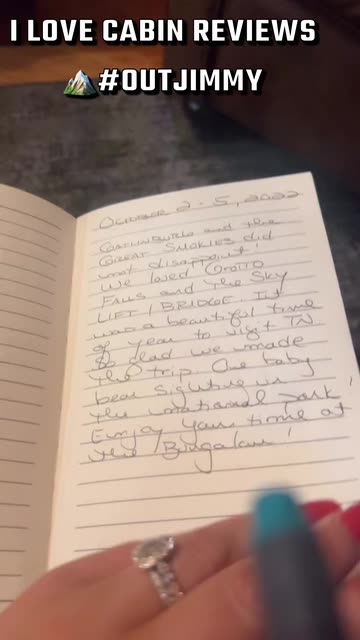 I LOVE CABIN REVIEWS
⛰️#OUTJIMMY
OCTOBER 2-5, 2022
GATLINBURG and the
GREAT SMOKIES did
not disappoint!
We loved
FALLS and the SKY
LIFT / BRIDGE. It
was a beautiful time
of year to visit TN
So glad we made
the trip. One baby
bear sighting in
the national park!
Enjoy your time at
the Bungalow!